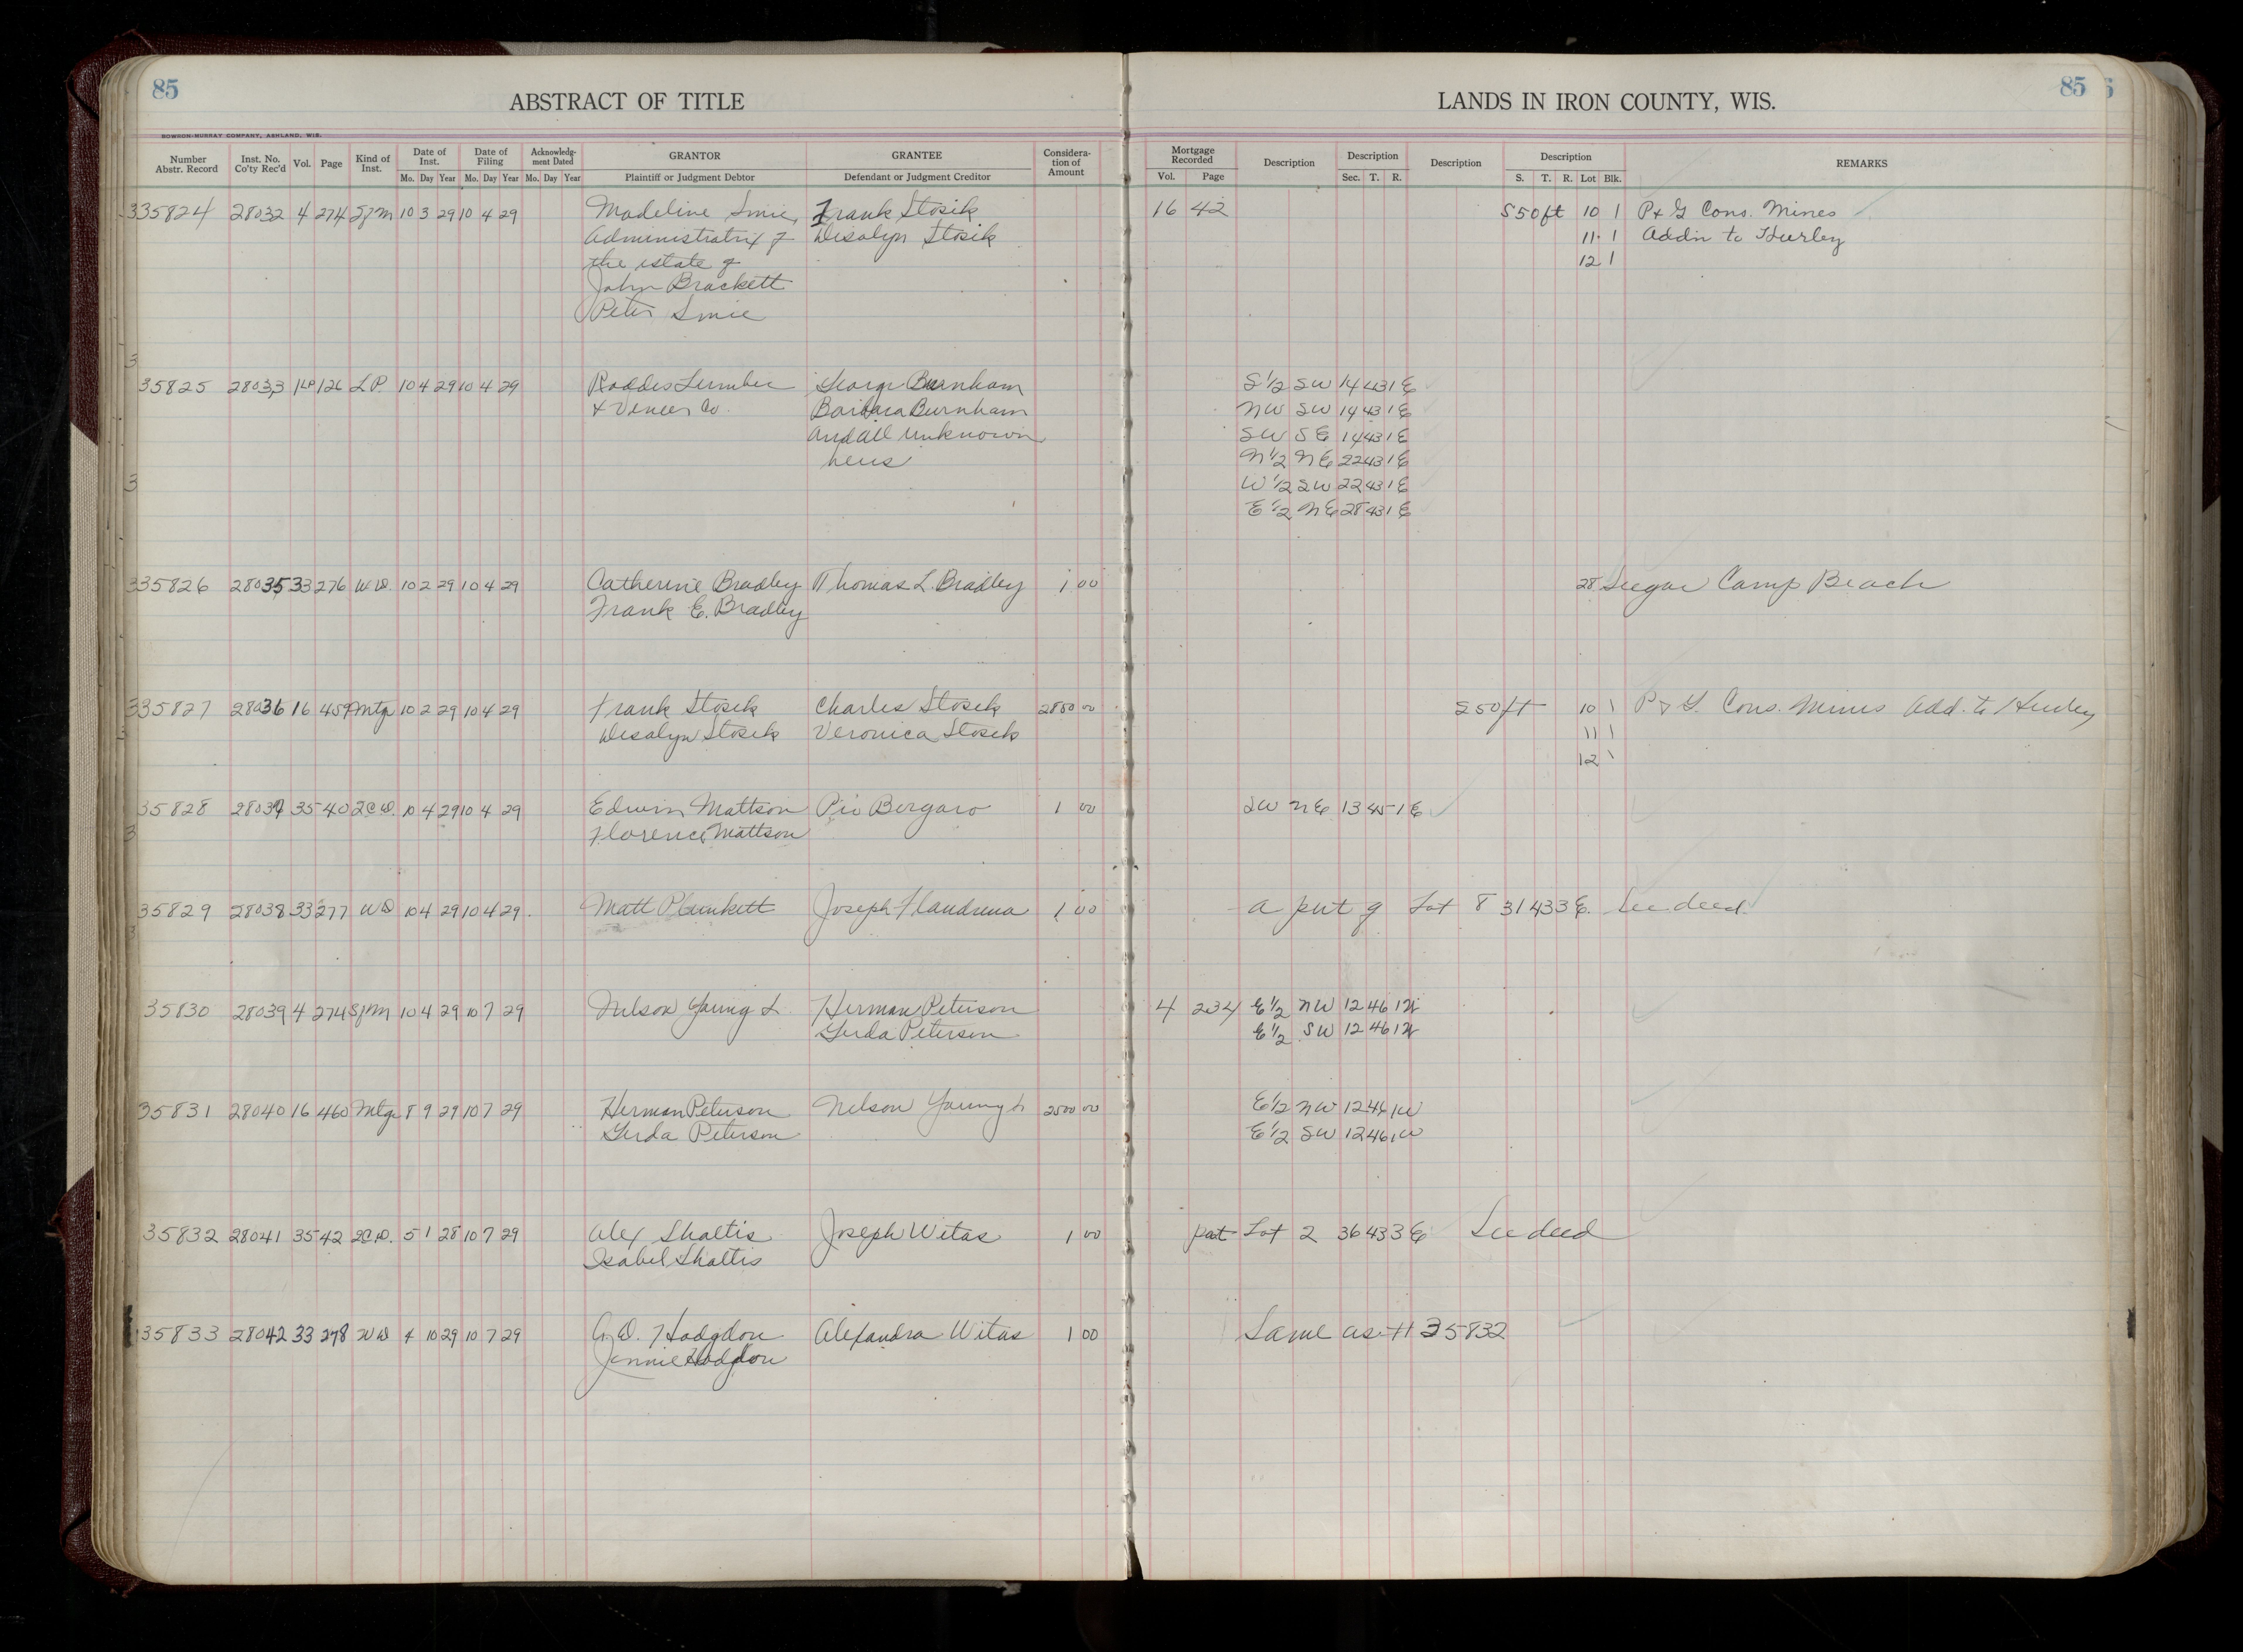 85
ABSTRACT OF TITLE
BOWRON-MURRAY COMPANY, ASHLAND, WIS.
Number Abstr. Record Inst. No. Co'ty Rec'd Vol. Page Kind of Inst. Date of Inst. Mo. Day Year Date of Filing Mo. Day Year Acknowledgment Dated Mo. Day Year GRANTOR Plaintiff or Judgment Debtor GRANTEE Defendant or Judgment Creditor Consideration of Amount
335824 28032 4 274 SfM 10 3 29 10 4 29 Madeline Frank Stosik
Administratrix of Stosik
the estate of
John Brackett
Peter
3
35825 28033 1LP 126 LP. 10 4 29 10 4 29 Roddis Lumber George Burnham
+ Veneer Co. Barbara Burnham
and all unknown
heirs
3
335826 28035 33 276 WD. 10 2 29 10 4 29 Catherine Bradley Thomas L. Bradley 1 00
Frank E. Bradley
335827 28036 16 459 Mtge 10 2 29 10 4 29 Frank Stosik Charles Stosik 2850 00
Stosik Veronica Stosik
35828 28037 35 40 2CD. 10 4 29 10 4 29 Edwin Mattson Pio Bergaro 1 00
3 Florence Mattson
35829 28038 33 277 WD 10 4 29 10 4 29 Matt Plunkett Joseph Flandrena 1 00
35830 28039 4 274 SfM 10 4 29 10 7 29 Nelson Young L. Herman Peterson
Gerda Peterson
35831 28040 16 460 Mtge 8 9 29 10 7 29 Herman Peterson Nelson Young L. 2500 00
Gerda Peterson
35832 28041 35 42 2CD. 5 1 28 10 7 29 Alex Shaltis Joseph Witas 1 00
Isabel Shaltis
35833 28042 33 278 WD 4 10 29 10 7 29 G.D. Hodgdon Alexandra Witas 1 00
Jennie Hodgdon
85
LANDS IN IRON COUNTY, WIS.
Mortgage Recorded Vol. Page Description Description Sec. T. R. Description Description S. T. R. Lot Blk. REMARKS
16 42 S 50 ft 10 1 P + G Cons. Mines
11 1 Addn to Hurley
12 1
S 1/2 SW 14 43 1 E
NW SW 14 43 1 E
SW SE 14 43 1 E
N 1/2 NE 22 43 1 E
W 1/2 SW 22 43 1 E
E 1/2 NE 28 43 1 E
28 Sugar Camp Beach
S 50 ft 10 1 P & G. Cons. Mines Add. to Hurley
11 1
12 1
SW NE 13 45 1 E
a part of Lot 8 31 43 3 E. See deed
4 234 E 1/2 NW 12 46 1 W
E 1/2 SW 12 46 1 W
E 1/2 NW 12 46 1 W
E 1/2 SW 12 46 1 W
part Lot 2 36 43 3 E See deed
Same as # 35832